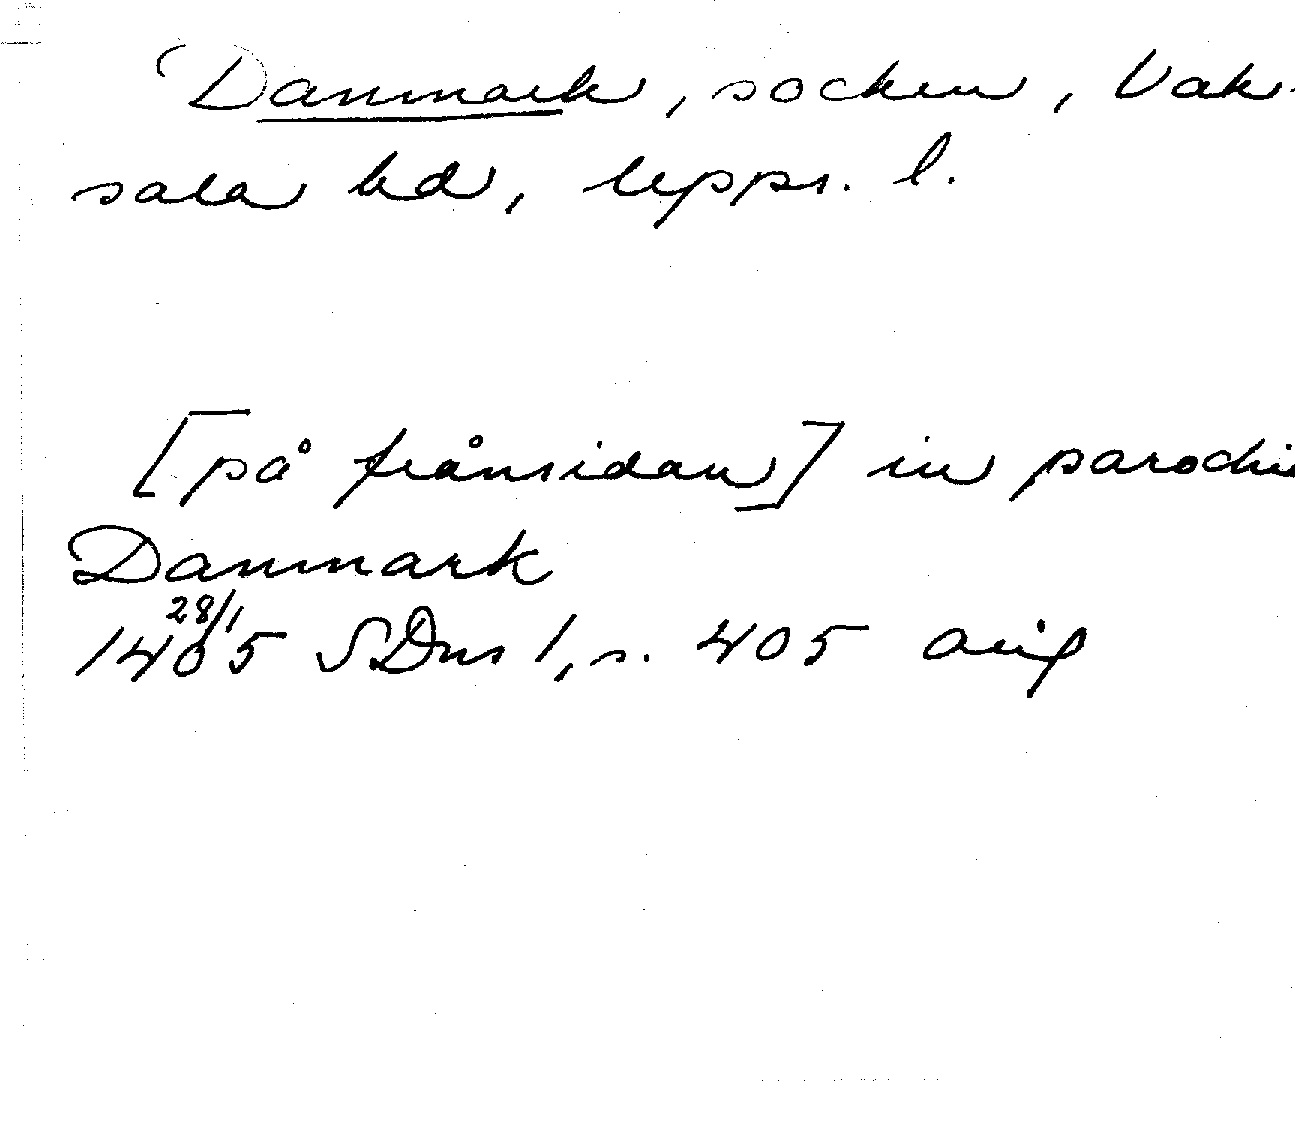 Danmark, socken, Vak-
sala hd, Upps. l.
[på frånsidan] in parochi
Danmark
28/1
1405 SDns 1, s. 405 orig